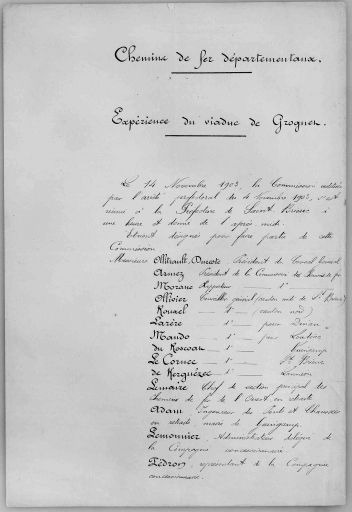 Chemins de fer départementaux.
Expérience du viaduc de Grognet.
Le 14 Novembre 1903, la Commission instituée
par l'arrêté préfectoral du 4 Novembre 1903, s'est
réunie à la Préfecture de Saint Brieuc à
une heure et demie de l'après-midi.
Etaient désignés pour faire partie de cette
Commission
Messieurs Allitrault Durose Président du Conseil Général
Armez Président de la Commission des Chemins de fer
Morane Rapporteur — d°
Ollivier Conseiller général (canton midi de St Brieuc)
Rouxel — d° — (canton nord)
Larère — d° — pour Dinan
Mando — d° — pour
du Roscoat — d° — Guingamp
Le Cornec — d° — St Brieuc
de Kerguézec — d° — Lannion
Lemaire Chef de section principal des
chemins de fer de l'Ouest en retraite
Adam Ingénieur des Ponts et Chaussées
en retraite maire de Guingamp.
Lemonnier Administrateur délégué de
la Compagnie concessionnaire
Pédron, représentant de la Compagnie
concessionnaire.